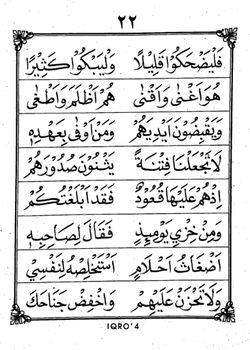 ٢٢
فَلْيَضْحَكُوْا قَلِيْلًا وَلْيَبْكُوْا كَثِيْرًا
هُوَ أَغْنٰى وَأَقْنٰى هُمْ أَظْلَمَ وَأَطْغٰى
وَيَقْبِضُوْنَ أَيْدِيَهُمْ وَمَنْ أَوْفٰى بِعَهْدِهٖ
لَاتَجْعَلْنَا فِتْنَةً يَثْنُوْنَ صُدُوْرَهُمْ
إِذْهُمْ عَلَيْهَا قُعُوْدٌ فَقَدْ أَبْلَغْتُكُمْ
وَمِنْ خِزْيِ يَوْمِئِذٍ فَقَالَ لِصَاحِبِهٖ
أَضْغَاثُ أَحْلَامٍ أَسْتَخْلِصْهُ لِنَفْسِيْ
وَلَاتَحْزَنْ عَلَيْهِمْ وَاخْفِضْ جَنَاحَكَ
IQRO'4